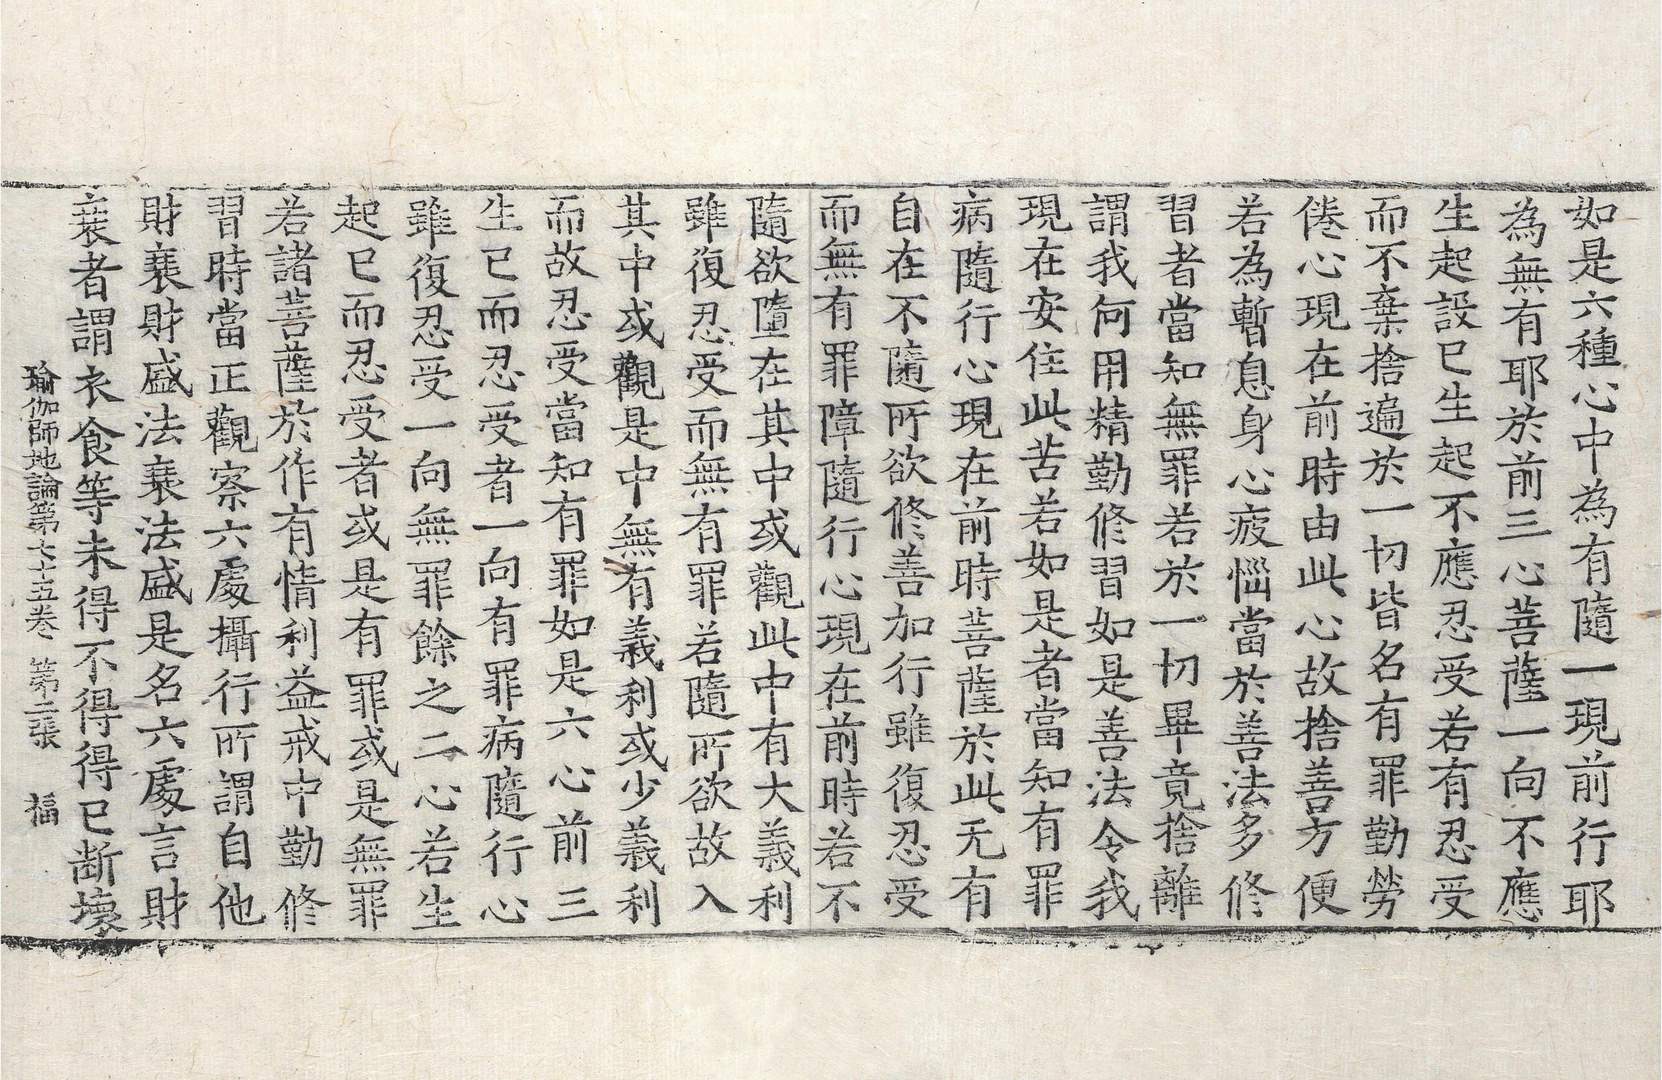 如是六種心中為有隨一現前行耶
為無有耶於前三心菩薩一向不應
生起設已生起不應忍受若有忍受
而不棄捨遍於一切皆名有罪勤勞
倦心現在前時由此心故捨善方便
若為暫息身心疲惱當於善法多修
習者當知無罪若於一切畢竟捨離
謂我何用精勤修習如是善法令我
現在安住此苦若如是者當知有罪
病隨行心現在前時菩薩於此无有
自在不隨所欲修善加行雖復忍受
而無有罪障隨行心現在前時若不
隨欲墮在其中或觀此中有大義利
雖復忍受而無有罪若隨所欲故入
其中或觀是中無有義利或少義利
而故忍受當知有罪如是六心前三
生已而忍受者一向有罪病隨行心
雖復忍受一向無罪餘之二心若生
起已而忍受者或是有罪或是無罪
若諸菩薩於作有情利益戒中勤修
習時當正觀察六處攝行所謂自他
財衰財盛法衰法盛是名六處言財
衰者謂衣食等未得不得得已斷壞
瑜伽師地論第七十五卷 第二張 福